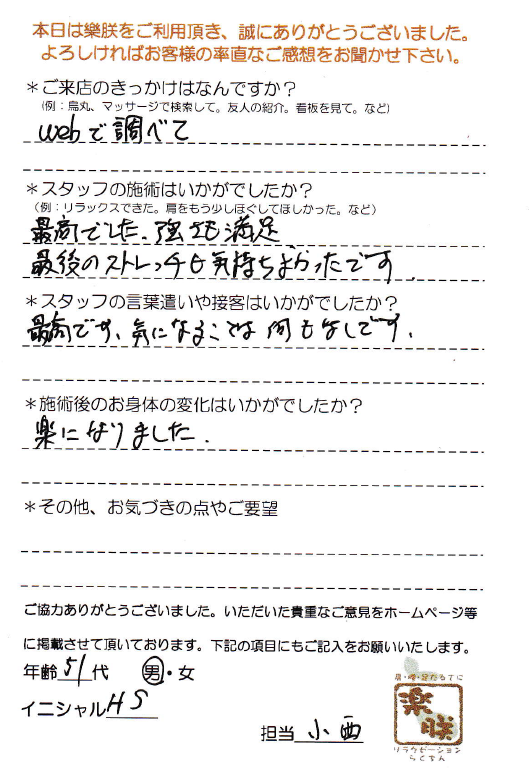 本日は樂朕をご利用頂き、誠にありがとうございました。
よろしければお客様の率直なご感想をお聞かせ下さい。
＊ご来店のきっかけはなんですか？
(例：烏丸、マッサージで検索して。友人の紹介。看板を見て。など)
webで調べて
＊スタッフの施術はいかがでしたか？
(例：リラックスできた。肩をもう少しほぐしてほしかった。など)
最高でした、強さも満足
最後のストレッチも気持ちよかったです
＊スタッフの言葉遣いや接客はいかがでしたか？
最高です、気になることは何もなしです.
＊施術後のお身体の変化はいかがでしたか？
楽になりました.
＊その他、お気づきの点やご要望
ご協力ありがとうございました。いただいた貴重なご意見をホームページ等
に掲載させて頂いております。下記の項目にもご記入をお願いいたします。
年齢 51代 男・女
イニシャル HS
担当 小西
樂朕
リラクゼーション
らくちん